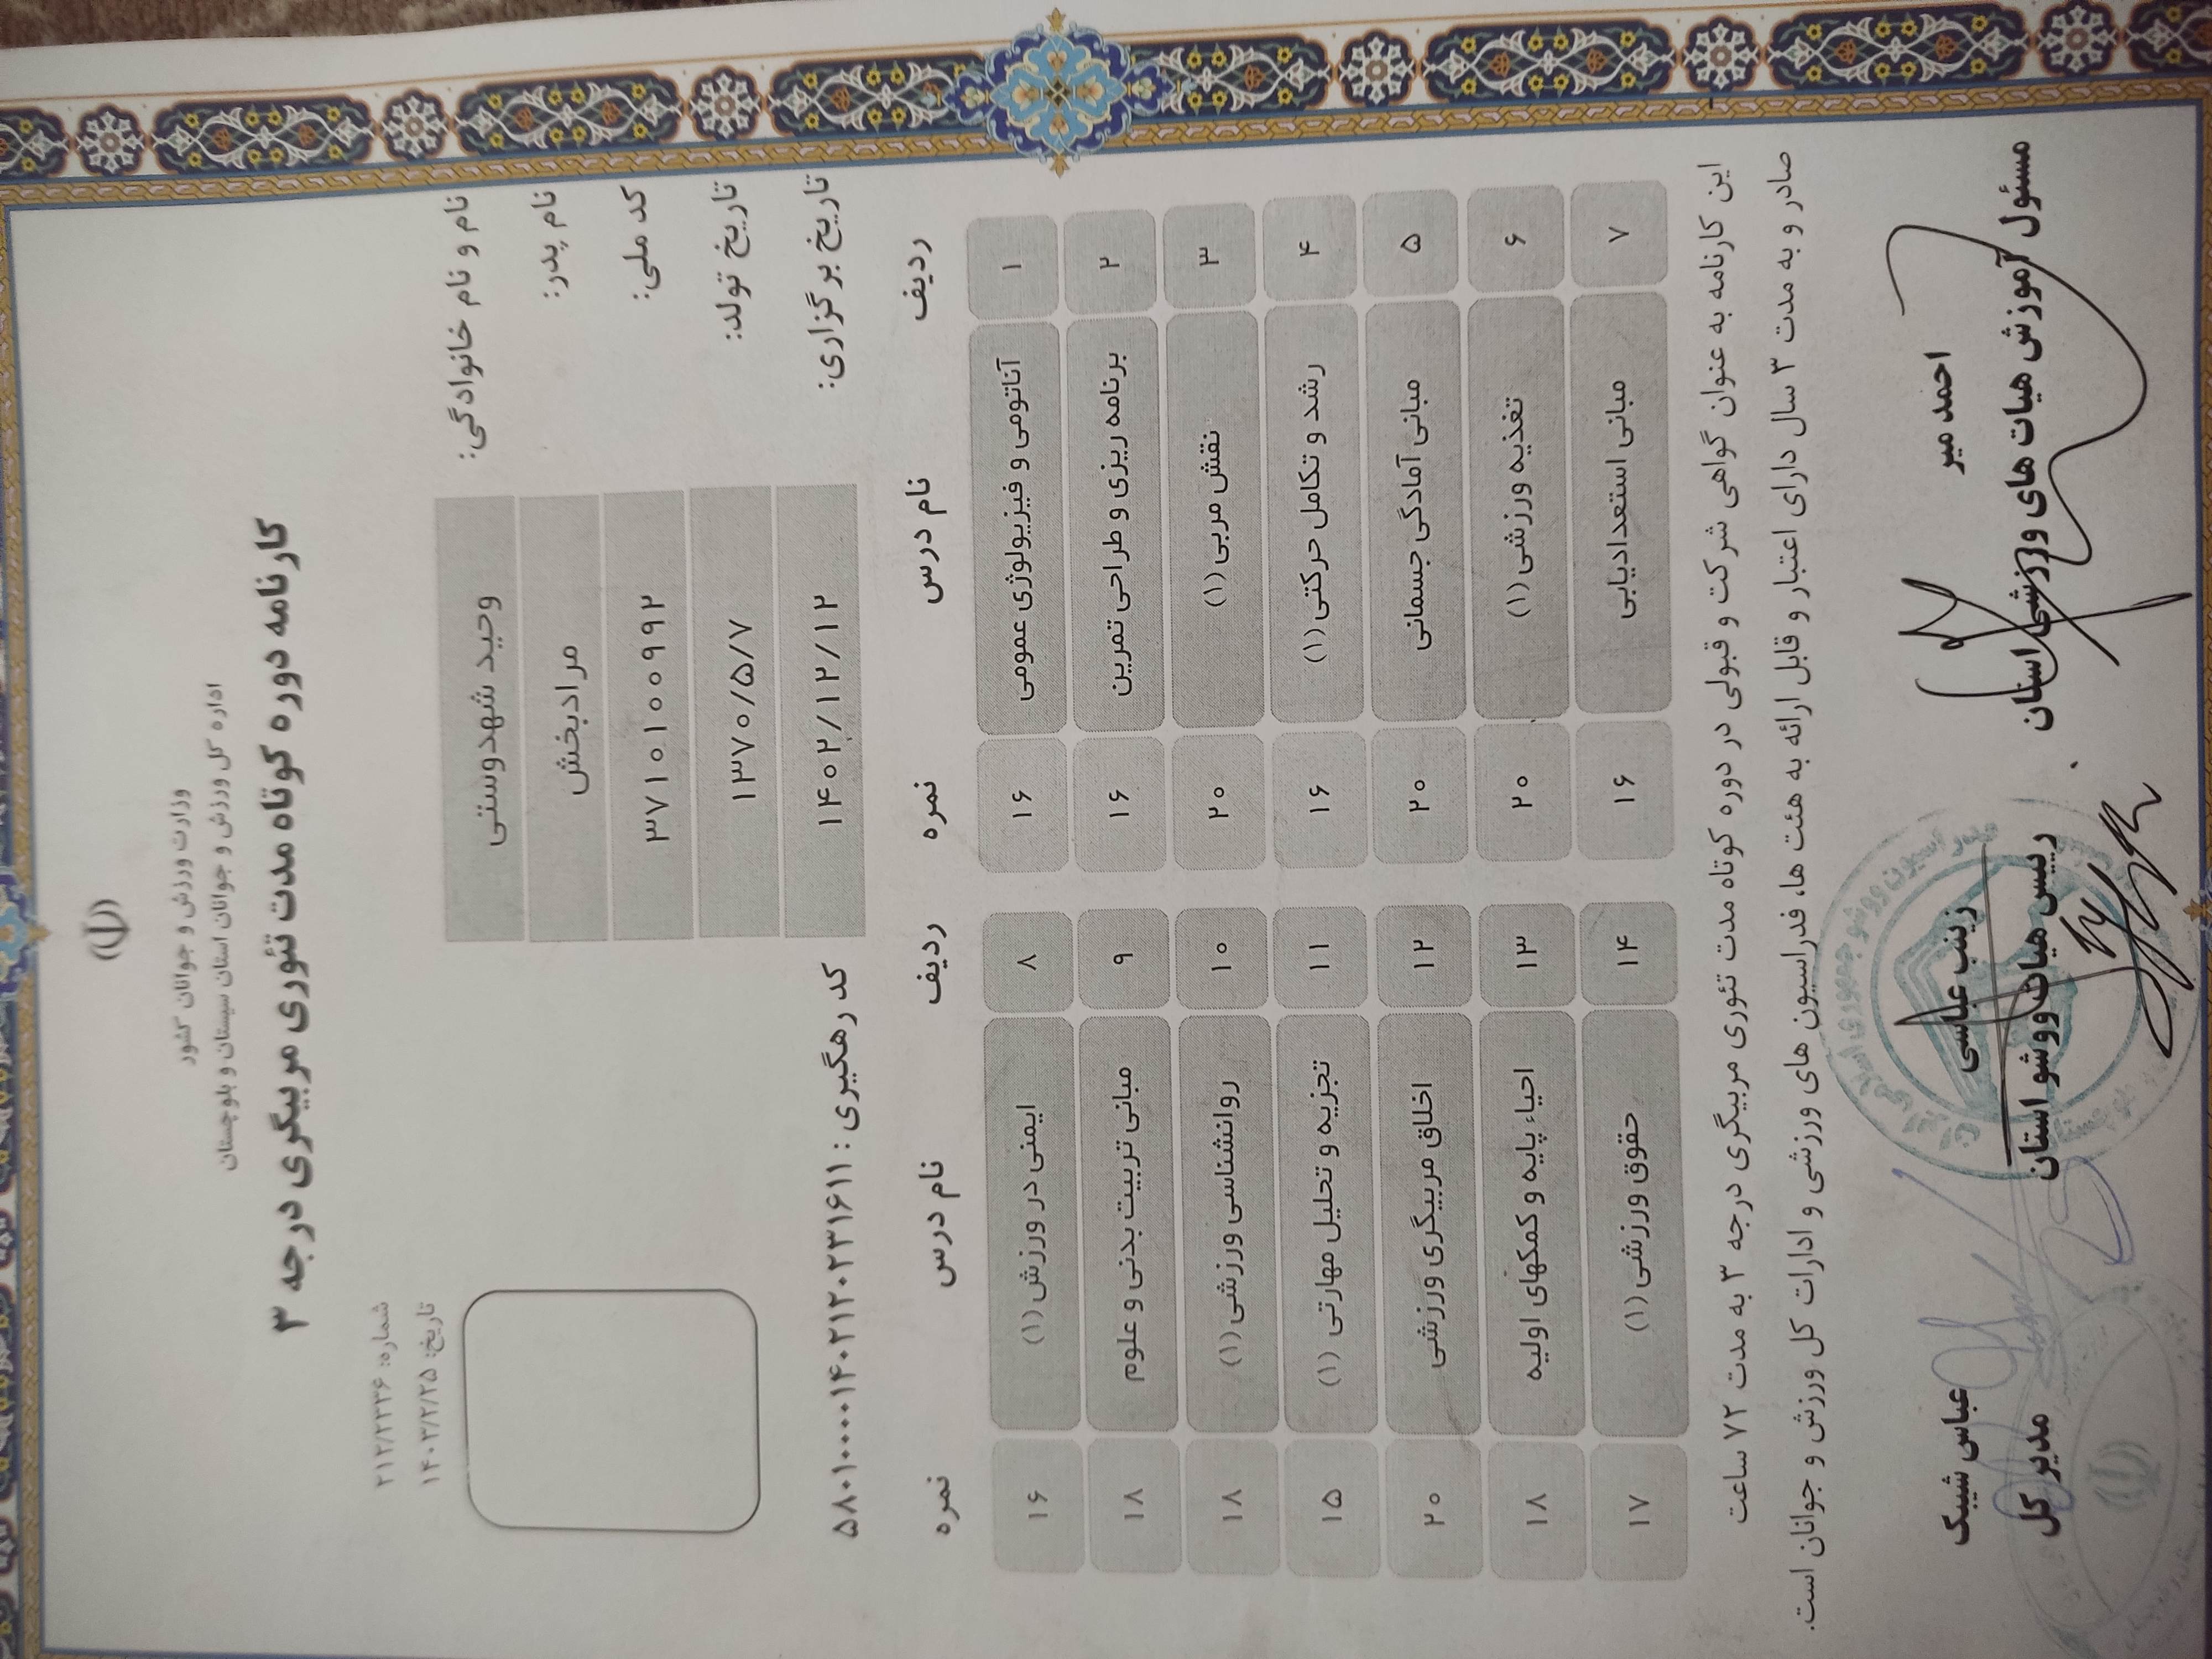 وزارت ورزش و جوانان کشور
اداره کل ورزش و جوانان استان سیستان و بلوچستان
کارنامه دوره کوتاه مدت تئوری مربیگری درجه ۳
شماره: ۲۱۲/۲۳۳۶
تاریخ: ۱۴۰۳/۲/۲۵
نام و نام خانوادگی: وحید شهدوستی
نام پدر: مرادبخش
کد ملی: ۳۷۱۰۱۰۰۹۹۲
تاریخ تولد: ۱۳۷۰/۵/۷
تاریخ برگزاری: ۱۴۰۲/۱۲/۱۲
کد رهگیری: ۵۸۰۱۰۰۰۰۱۴۰۲۱۲۰۲۳۱۶۱۱
ردیف نام درس نمره ردیف نام درس نمره
۱ آناتومی و فیزیولوژی عمومی ۱۶ ۸ ایمنی در ورزش (۱) ۱۶
۲ برنامه ریزی و طراحی تمرین ۱۶ ۹ مبانی تربیت بدنی و علوم ۱۸
۳ نقش مربی (۱) ۲۰ ۱۰ روانشناسی ورزشی (۱) ۱۸
۴ رشد و تکامل حرکتی (۱) ۱۶ ۱۱ تجزیه و تحلیل مهارتی (۱) ۱۵
۵ مبانی آمادگی جسمانی ۲۰ ۱۲ اخلاق مربیگری ورزشی ۲۰
۶ تغذیه ورزشی (۱) ۲۰ ۱۳ احیاء پایه و کمکهای اولیه ۱۸
۷ مبانی استعدادیابی ۱۶ ۱۴ حقوق ورزشی (۱) ۱۷
این کارنامه به عنوان گواهی شرکت و قبولی در دوره کوتاه مدت تئوری مربیگری درجه ۳ به مدت ۷۲ ساعت
صادر و به مدت ۳ سال دارای اعتبار و قابل ارائه به هئت ها، فدراسیون های ورزشی و ادارات کل ورزش و جوانان است.
احمد میر زینب عباسی عباس شیبک
مسئول آموزش هیات های ورزشی استان رییس هیات ووشو استان مدیر کل